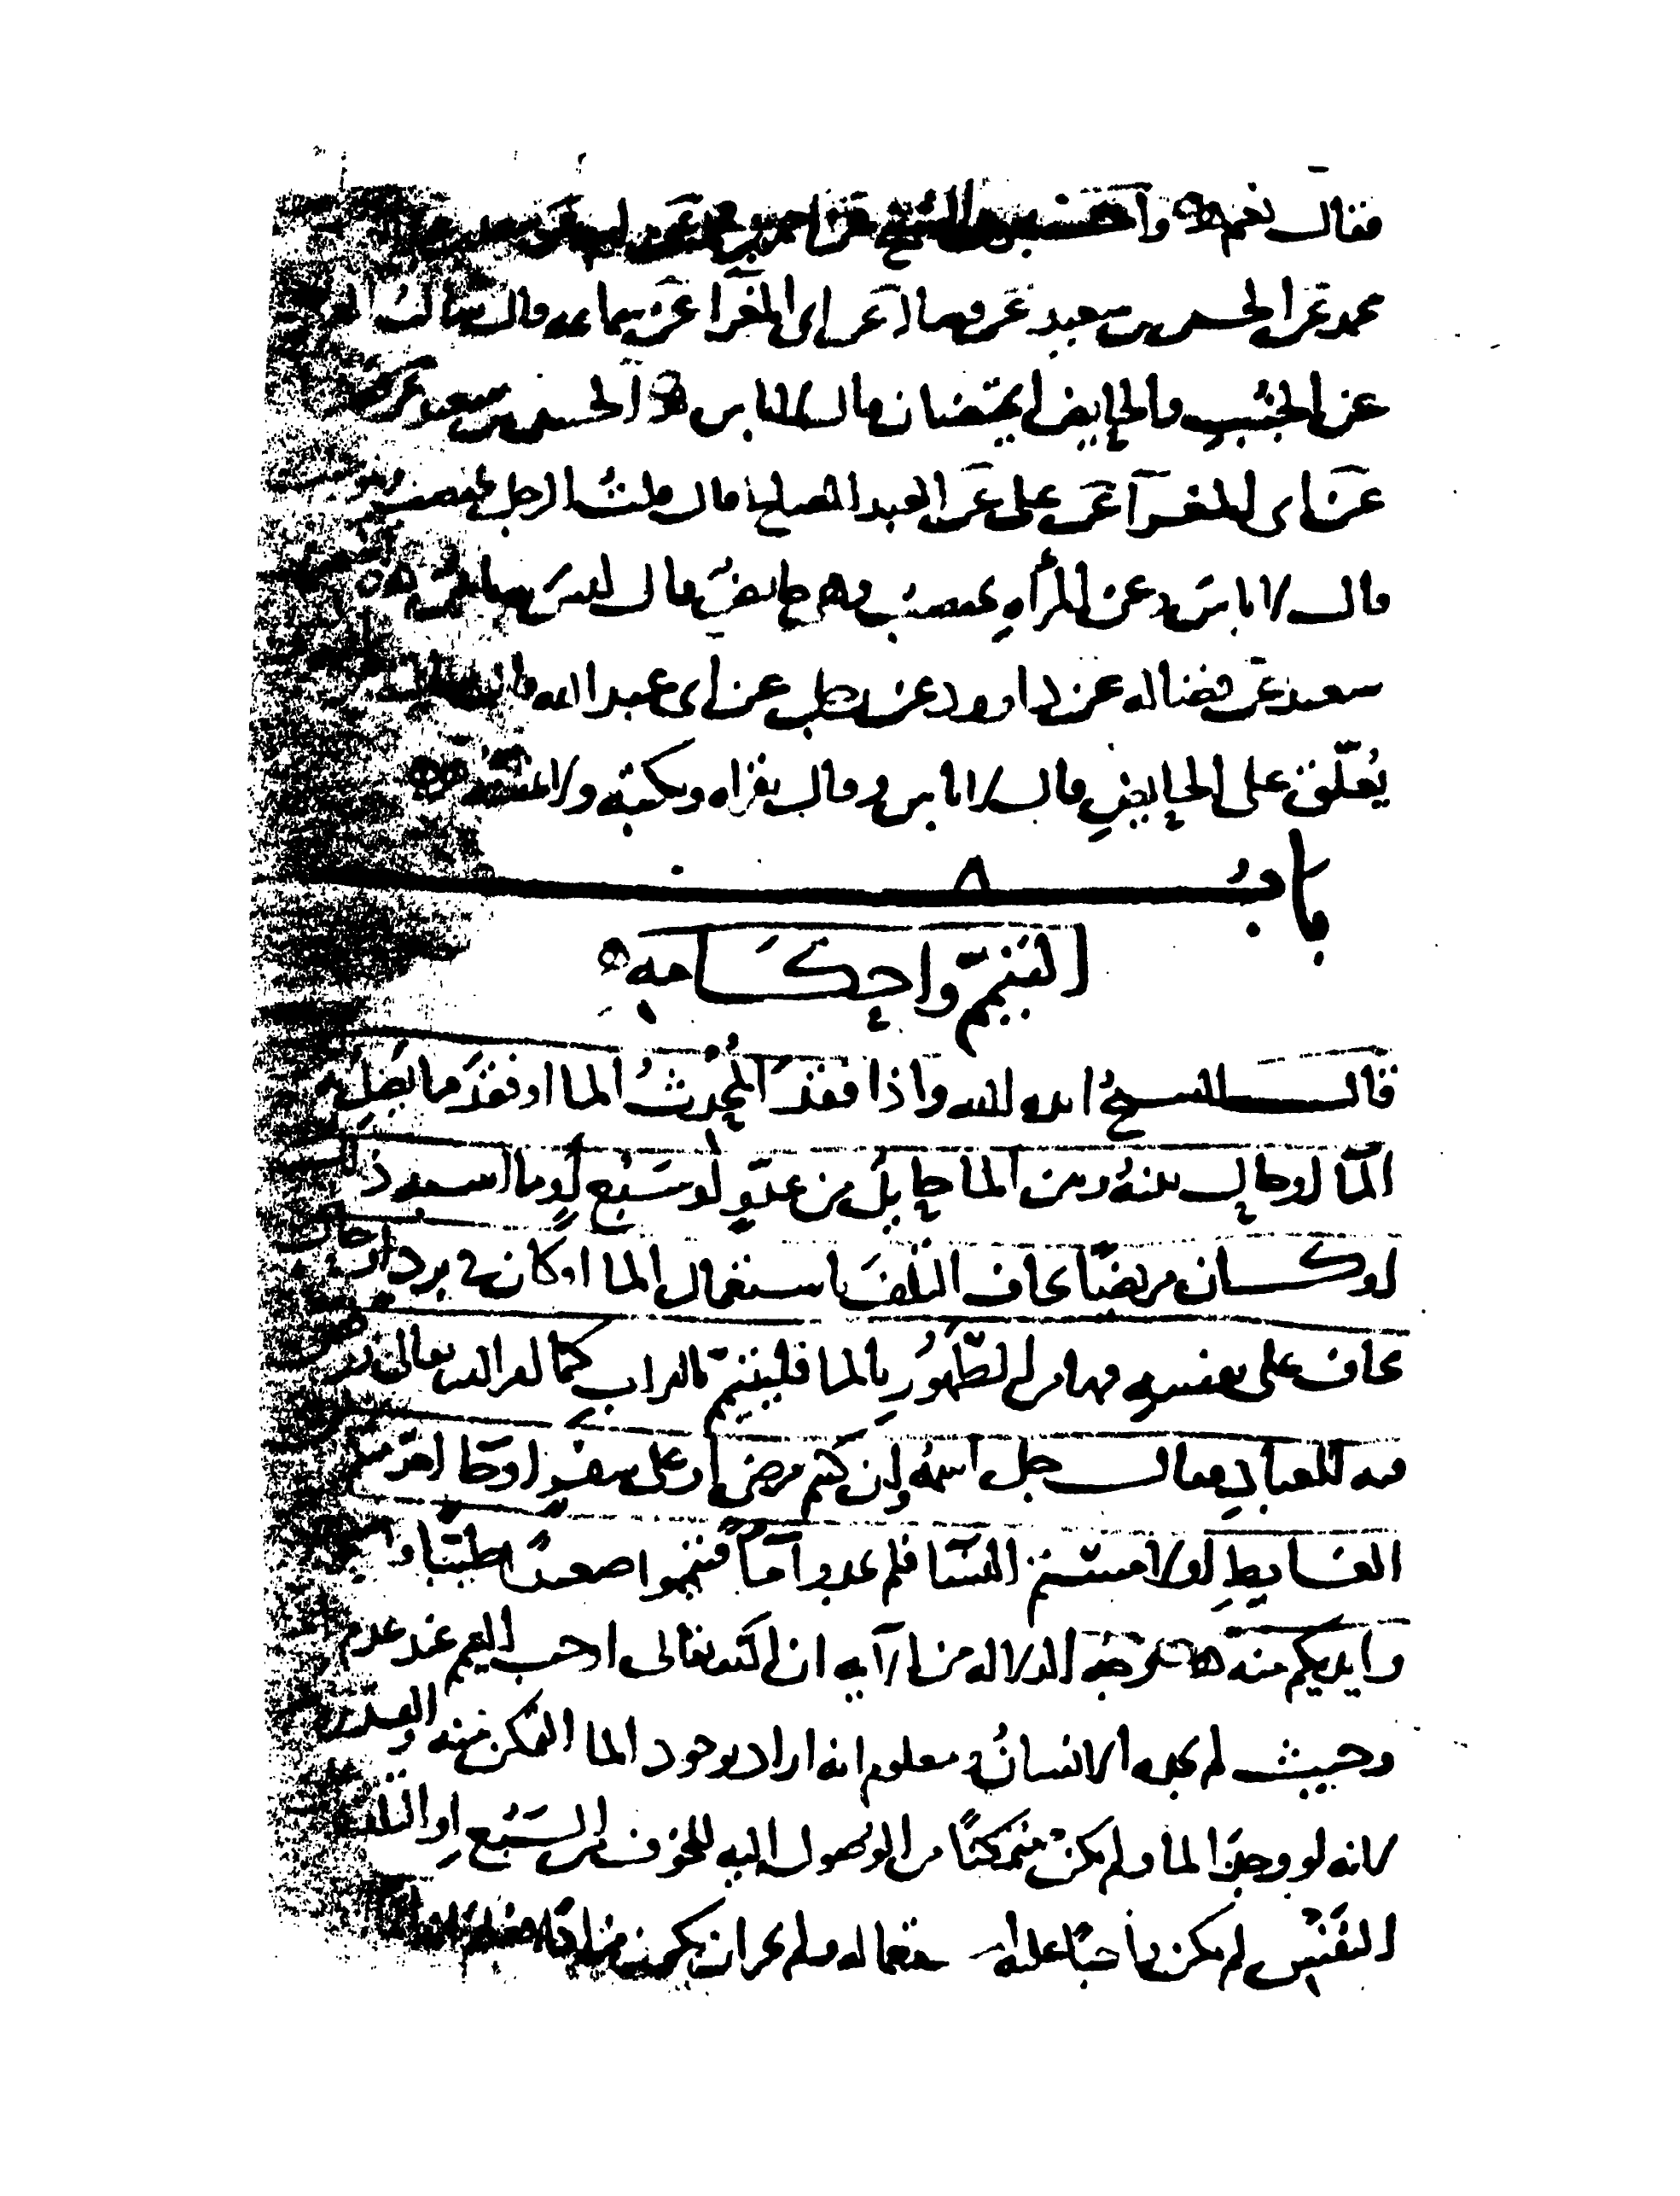 فقال نعم ه واخبرني الشيخ عن احمد بن محمد عن ابيه عن سعد بن
محمد عن الحسين بن سعيد عن فضالة عن ابى المغرا عن سماعه قال سالت العبد
عن الجنب والحايض ايختضبان قال لا باس ه الحسين بن سعيد عن
عن ابى المغرا عن على عن العبد الصالح قال قلت الرجل يختضب
قال لا باس وعن المراه تختضب وهى حايض قال ليس به باس ه
سعيد عن فضاله عن داوود عن رجل عن ابى عبد الله قال
يُعلّق على الحايض قال لا باس وقال يقراه ويكتبه ولا تمسه ه
باب
التيمّم واحكامه ه
قال الشيخ ايده الله واذا فقد المحدث الما او فقد ما يصل به
الما او حال بينه وبين الما حايل من عدوّ او سَبُع او ما اشبه ذلك
او كان مريضًا يخاف التلف باستعمال الما او كان فى برد او حال
يخاف على نفسه فيها من الطّهور بالما فليتيمّم بالتراب كما امر الله تعالى
فيه للعباد فقال جل اسمه وان كنتم مرضى او على سفر او جا احد منكم
الغايط او لامستم النسا فلم تجدوا مآ فتيمموا صعيدًا طيّبًا
وايديكم منه ه وجه الدلاله من الآيه ان الله تعالى اوجب التيمم عند عدم الما
وحيث لم يجده الانسان ومعلوم انه اراد بوجود الما التمكن منه والقدره
لانه لو وجد الما ولم يكن متمكنًا من الوصول اليه للخوف من السَبُع او التلف
النفس لم يكن واجبًا عليه استعماله ولم يجز ان يكون